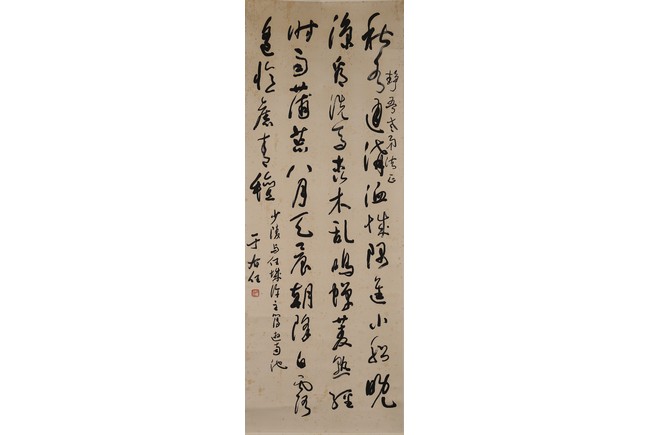 秋水通溝洫城隅進小船晚
涼看洗馬森木乱鳴蟬菱熟經
時雨蒲荒八月天晨朝降白露
遙憶舊青氈
少陵与任城許主簿遊南池
于右任